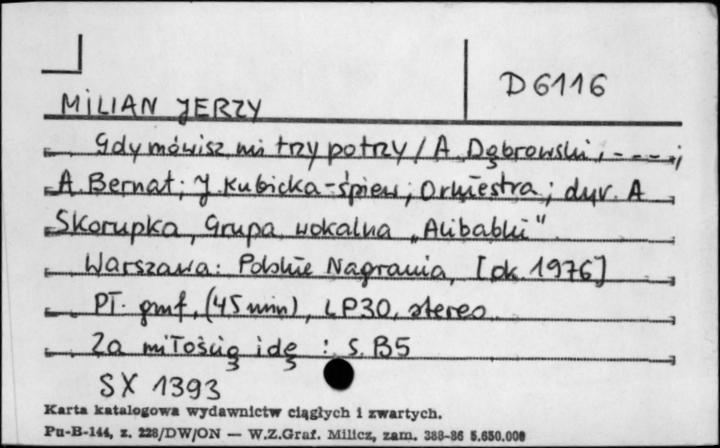 D 6116
MILIAN JERZY
Gdy mówisz mi trzy po trzy / A. Dąbrowski, - - - - ;
A. Bernat; J. Kubicka - śpiew; Orkiestra; dyr. A
Skorupka, Grupa wokalna „Alibabki"
Warszawa: Polskie Nagrania, [ok. 1976]
PŁ. gmf. (45 min), LP30, stereo
Za miłością idę : s. B5
SX 1393
Karta katalogowa wydawnictw ciągłych i zwartych.
Pu-B-144, z. 228/DW/ON — W.Z.Graf. Milicz, zam. 388-86 5.650.000